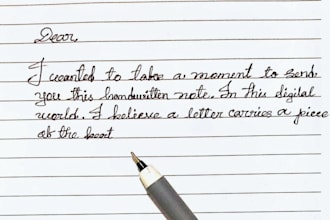 Dear,
I wanted to take a moment to send
you this handwritten note. In this digital
world. I believe a letter carries a piece
of the heart